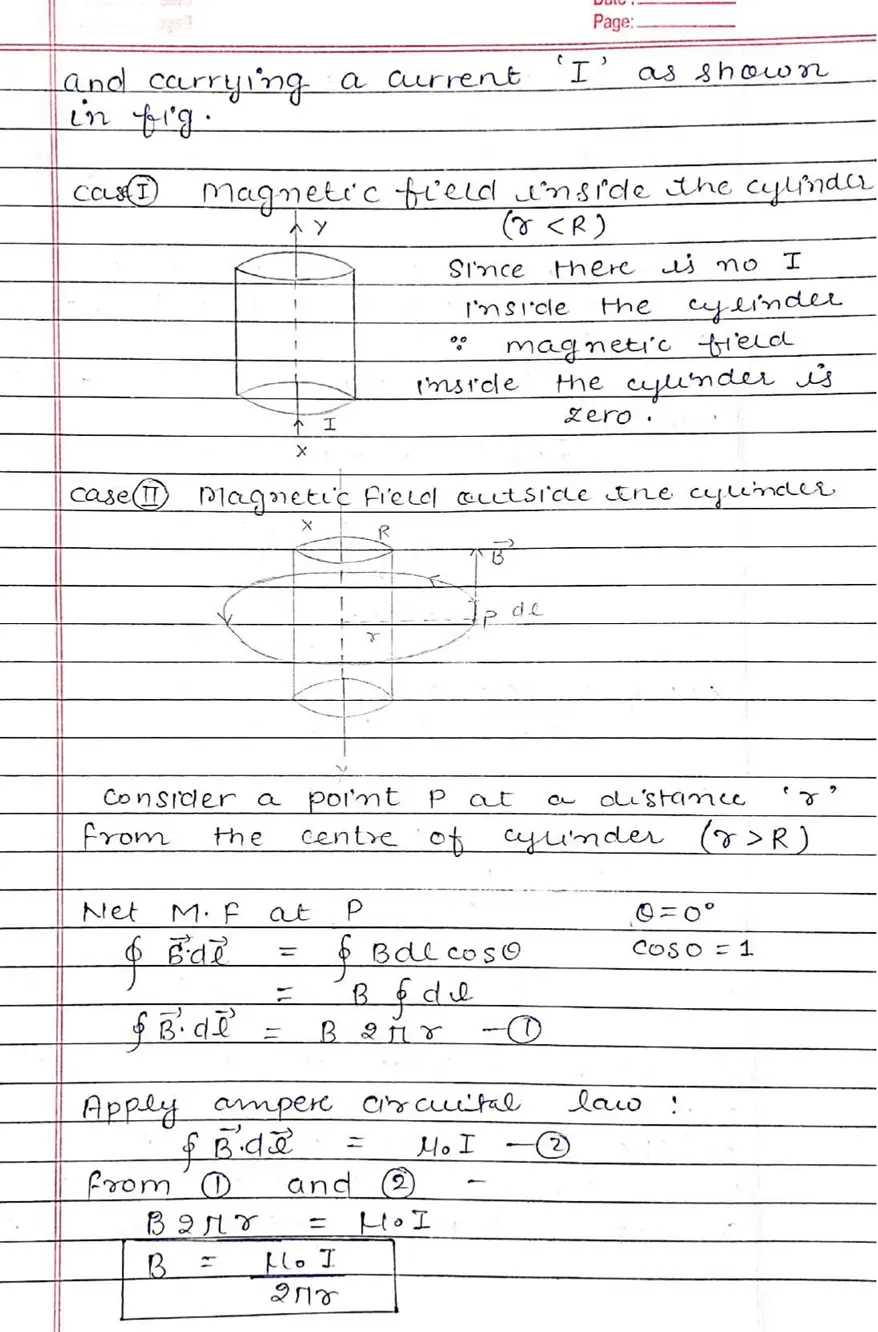 Date :
Page:
and carrying a current 'I' as shown
in fig.
case Ⓘ Magnetic field inside the cylinder
(r < R)
Y
Since there is no I
inside the cylinder
∵ magnetic field
inside the cylinder is
zero.
I
X
case Ⅱ Magnetic field outside the cylinder
X
R
B⃗
P dl
r
Y
Consider a point P at a distance 'r'
from the centre of cylinder (r > R)
Net M.F at P θ = 0°
∮ B⃗.dl⃗ = ∮ Bdl cosθ cos0 = 1
= B ∮ dl
∮ B⃗.dl⃗ = B 2πr —①
Apply ampere circuital law :
∮ B⃗.dl⃗ = μ₀I —②
from ① and ② -
B 2πr = μ₀I
B = μ₀ I
2πr